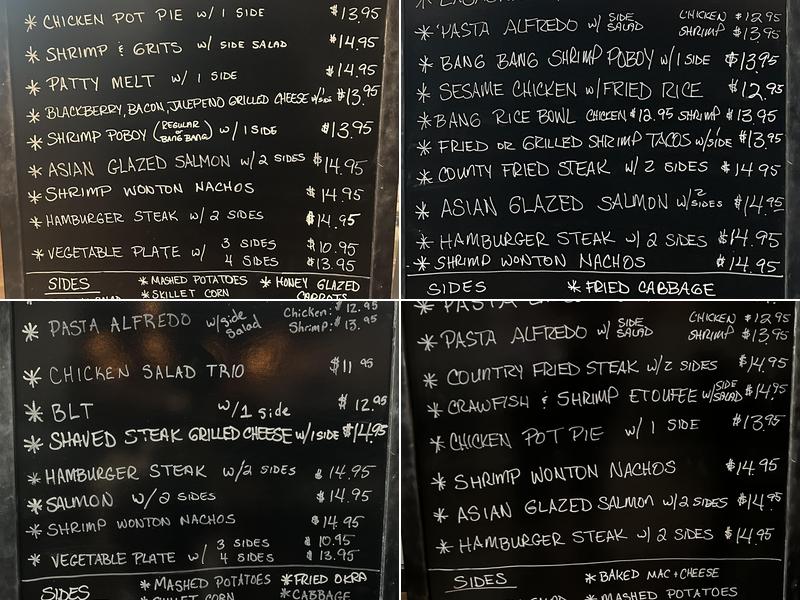 * CHICKEN POT PIE w/ 1 SIDE $13.95
* SHRIMP & GRITS w/ SIDE SALAD $14.95
* PATTY MELT w/ 1 SIDE $14.95
* BLACKBERRY, BACON, JALEPENO GRILLED CHEESE w/1 side $13.95
* SHRIMP POBOY (REGULAR or BANG BANG) w/ 1 SIDE $13.95
* ASIAN GLAZED SALMON w/ 2 SIDES $14.95
* SHRIMP WONTON NACHOS $14.95
* HAMBURGER STEAK w/ 2 SIDES $14.95
* VEGETABLE PLATE w/ 3 SIDES $10.95
4 SIDES $13.95
SIDES * MASHED POTATOES * HONEY GLAZED
* SKILLET CORN CARROTS
* PASTA ALFREDO w/ SIDE SALAD CHICKEN $12.95
SHRIMP $13.95
* BANG BANG SHRIMP POBOY w/ 1 SIDE $13.95
* SESAME CHICKEN w/ FRIED RICE $12.95
* BANG RICE BOWL CHICKEN $12.95 SHRIMP $13.95
* FRIED OR GRILLED SHRIMP TACOS w/ 1 side $13.95
* COUNTY FRIED STEAK w/ 2 SIDES $14.95
* ASIAN GLAZED SALMON w/ 2 SIDES $14.95
* HAMBURGER STEAK w/ 2 SIDES $14.95
* SHRIMP WONTON NACHOS $14.95
SIDES * FRIED CABBAGE
* PASTA ALFREDO w/ side salad Chicken: $12.95
Shrimp: $13.95
* CHICKEN SALAD TRIO $11.95
* BLT w/ 1 side $12.95
* SHAVED STEAK GRILLED CHEESE w/ 1 SIDE $14.95
* HAMBURGER STEAK w/ 2 SIDES $14.95
* SALMON w/ 2 SIDES $14.95
* SHRIMP WONTON NACHOS $14.95
* VEGETABLE PLATE w/ 3 SIDES $10.95
4 SIDES $13.95
SIDES * MASHED POTATOES * FRIED OKRA
SKILLET CORN * CABBAGE
* PASTA ALFREDO w/ SIDE SALAD CHICKEN $12.95
SHRIMP $13.95
* COUNTRY FRIED STEAK w/ 2 SIDES $14.95
* CRAWFISH & SHRIMP ETOUFEE w/ SIDE SALAD $14.95
* CHICKEN POT PIE w/ 1 SIDE $13.95
* SHRIMP WONTON NACHOS $14.95
* ASIAN GLAZED SALMON w/ 2 SIDES $14.95
* HAMBURGER STEAK w/ 2 SIDES $14.95
SIDES * BAKED MAC + CHEESE
* MASHED POTATOES